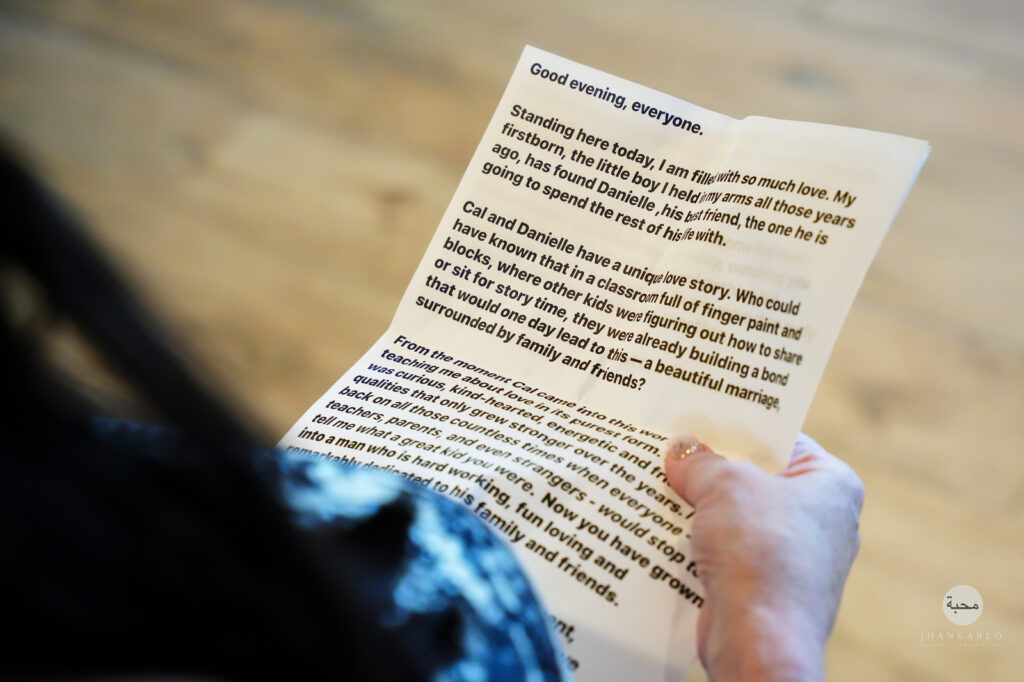 Good evening, everyone.
Standing here today, I am filled with so much love. My
firstborn, the little boy I held in my arms all those years
ago, has found Danielle ,his best friend, the one he is
going to spend the rest of his life with.
Cal and Danielle have a unique love story. Who could
have known that in a classroom full of finger paint and
blocks, where other kids were figuring out how to share
or sit for story time, they were already building a bond
that would one day lead to this — a beautiful marriage,
surrounded by family and friends?
From the moment Cal came into this
teaching me about love in its purest form.
was curious, kind-hearted, energetic and
qualities that only grew stronger over the years.
back on all those countless times when everyone -
teachers, parents, and even strangers - would stop
tell me what a great kid you were. Now you have grown
into a man who is hard working, fun loving and
remarkably dedicated to his family and friends.
محبة
JHANKARLO